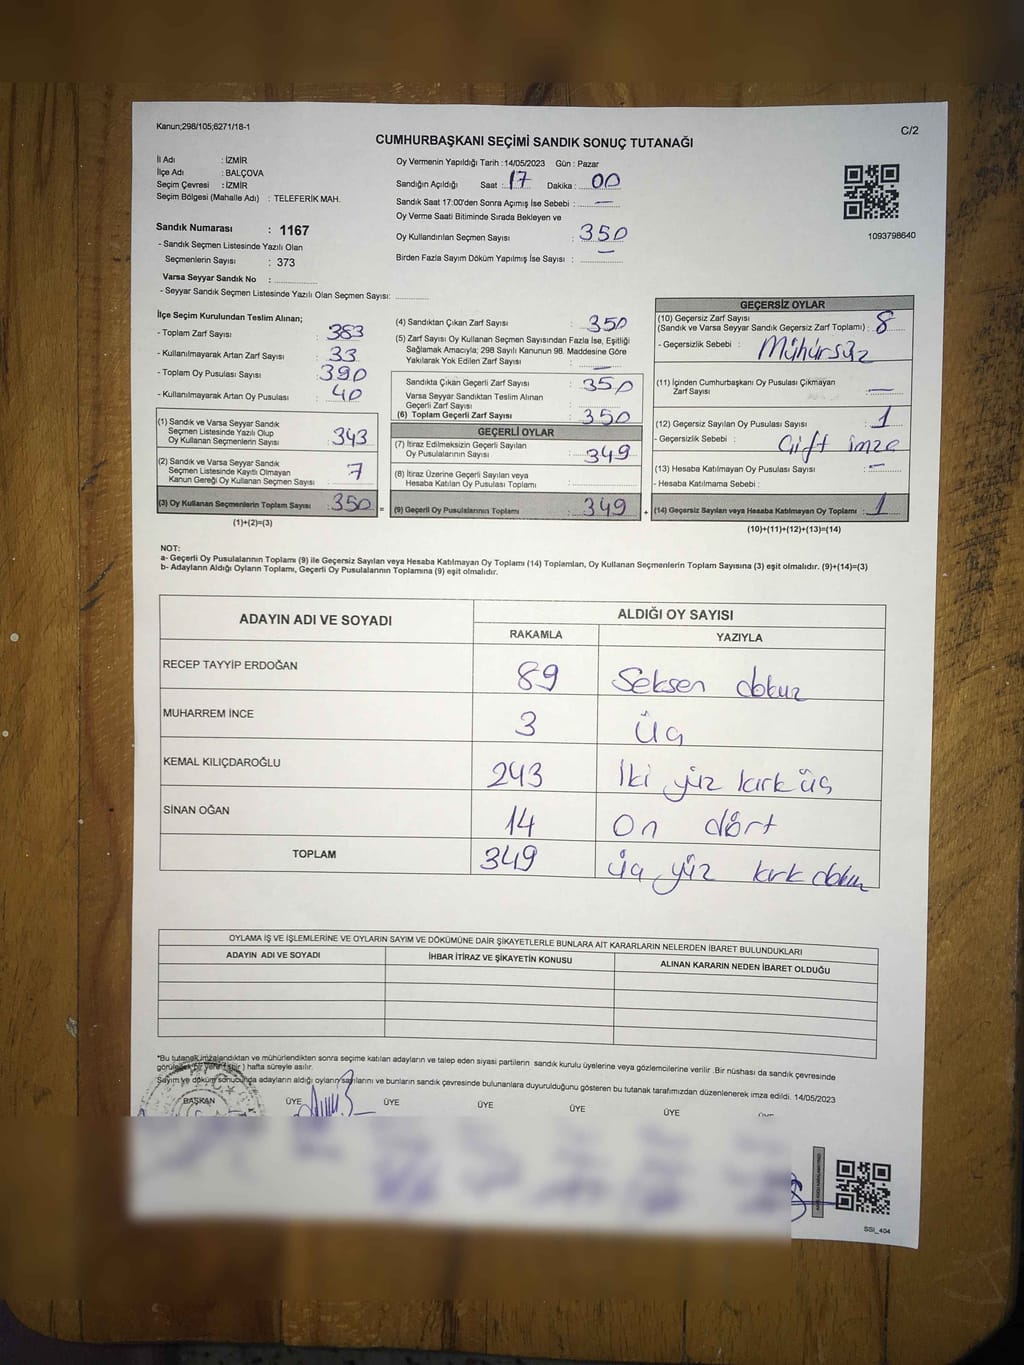 Kanun;298/105;6271/18-1
C/2
CUMHURBAŞKANI SEÇİMİ SANDIK SONUÇ TUTANAĞI
İl Adı : İZMİR
İlçe Adı : BALÇOVA
Seçim Çevresi : İZMİR
Seçim Bölgesi (Mahalle Adı) : TELEFERİK MAH.
Oy Vermenin Yapıldığı Tarih : 14/05/2023 Gün : Pazar
Sandığın Açıldığı Saat : 17 Dakika : 00
Sandık Saat 17:00'den Sonra Açımış İse Sebebi : —
Oy Verme Saati Bitiminde Sırada Bekleyen ve
Oy Kullandırılan Seçmen Sayısı : 350
Birden Fazla Sayım Döküm Yapılmış İse Sayısı : —
1093798640
Sandık Numarası : 1167
- Sandık Seçmen Listesinde Yazılı Olan
Seçmenlerin Sayısı : 373
Varsa Seyyar Sandık No :
- Seyyar Sandık Seçmen Listesinde Yazılı Olan Seçmen Sayısı:
İlçe Seçim Kurulundan Teslim Alınan;
- Toplam Zarf Sayısı : 383
- Kullanılmayarak Artan Zarf Sayısı : 33
- Toplam Oy Pusulası Sayısı : 390
- Kullanılmayarak Artan Oy Pusulası : 40
(1) Sandık ve Varsa Seyyar Sandık
Seçmen Listesinde Yazılı Olup
Oy Kullanan Seçmenlerin Sayısı : 343
(2) Sandık ve Varsa Seyyar Sandık
Seçmen Listesinde Kayıtlı Olmayan
Kanun Gereği Oy Kullanan Seçmen Sayısı : 7
(3) Oy Kullanan Seçmenlerin Toplam Sayısı : 350 =
(1)+(2)=(3)
(4) Sandıktan Çıkan Zarf Sayısı : 350
(5) Zarf Sayısı Oy Kullanan Seçmen Sayısından Fazla İse, Eşitliği
Sağlamak Amacıyla; 298 Sayılı Kanunun 98. Maddesine Göre
Yakılarak Yok Edilen Zarf Sayısı : —
Sandıkta Çıkan Geçerli Zarf Sayısı : 350
Varsa Seyyar Sandıktan Teslim Alınan
Geçerli Zarf Sayısı :
(6) Toplam Geçerli Zarf Sayısı : 350
GEÇERLİ OYLAR
(7) İtiraz Edilmeksizin Geçerli Sayılan
Oy Pusulalarının Sayısı : 349
(8) İtiraz Üzerine Geçerli Sayılan veya
Hesaba Katılan Oy Pusulası Toplamı :
(9) Geçerli Oy Pusulalarının Toplamı : 349 +
GEÇERSİZ OYLAR
(10) Geçersiz Zarf Sayısı
(Sandık ve Varsa Seyyar Sandık Geçersiz Zarf Toplamı) : 8
- Geçersizlik Sebebi : Mühürsüz
(11) İçinden Cumhurbaşkanı Oy Pusulası Çıkmayan
Zarf Sayısı : —
(12) Geçersiz Sayılan Oy Pusulası Sayısı : 1
- Geçersizlik Sebebi : Çift imze
(13) Hesaba Katılmayan Oy Pusulası Sayısı : —
- Hesaba Katılmama Sebebi :
(14) Geçersiz Sayılan veya Hesaba Katılmayan Oy Toplamı : 1
(10)+(11)+(12)+(13)=(14)
NOT:
a- Geçerli Oy Pusulalarının Toplamı (9) ile Geçersiz Sayılan veya Hesaba Katılmayan Oy Toplamı (14) Toplamları, Oy Kullanan Seçmenlerin Toplam Sayısına (3) eşit olmalıdır. (9)+(14)=(3)
b- Adayların Aldığı Oyların Toplamı, Geçerli Oy Pusulalarının Toplamına (9) eşit olmalıdır.
ADAYIN ADI VE SOYADI
ALDIĞI OY SAYISI
RAKAMLA YAZIYLA
RECEP TAYYİP ERDOĞAN 89 Seksen dokuz
MUHARREM İNCE 3 üç
KEMAL KILIÇDAROĞLU 243 İki yüz kırk üç
SİNAN OĞAN 14 On dört
TOPLAM 349 üç yüz kırk dokuz
OYLAMA İŞ VE İŞLEMLERİNE VE OYLARIN SAYIM VE DÖKÜMÜNE DAİR ŞİKAYETLERLE BUNLARA AİT KARARLARIN NELERDEN İBARET BULUNDUKLARI
ADAYIN ADI VE SOYADI İHBAR İTİRAZ VE ŞİKAYETİN KONUSU ALINAN KARARIN NEDEN İBARET OLDUĞU
*Bu tutanak imzalandıktan ve mühürlendikten sonra seçime katılan adayların ve talep eden siyasi partilerin sandık kurulu üyelerine veya gözlemcilerine verilir .Bir nüshası da sandık çevresinde
görülecek bir yere 1 (bir) hafta süreyle asılır.
Sayım ve döküm sonucunda adayların aldığı oyların sayılarını ve bunların sandık çevresinde bulunanlara duyurulduğunu gösteren bu tutanak tarafımızdan düzenlenerek imza edildi. 14/05/2023
BAŞKAN ÜYE ÜYE ÜYE ÜYE ÜYE
SSİ_404